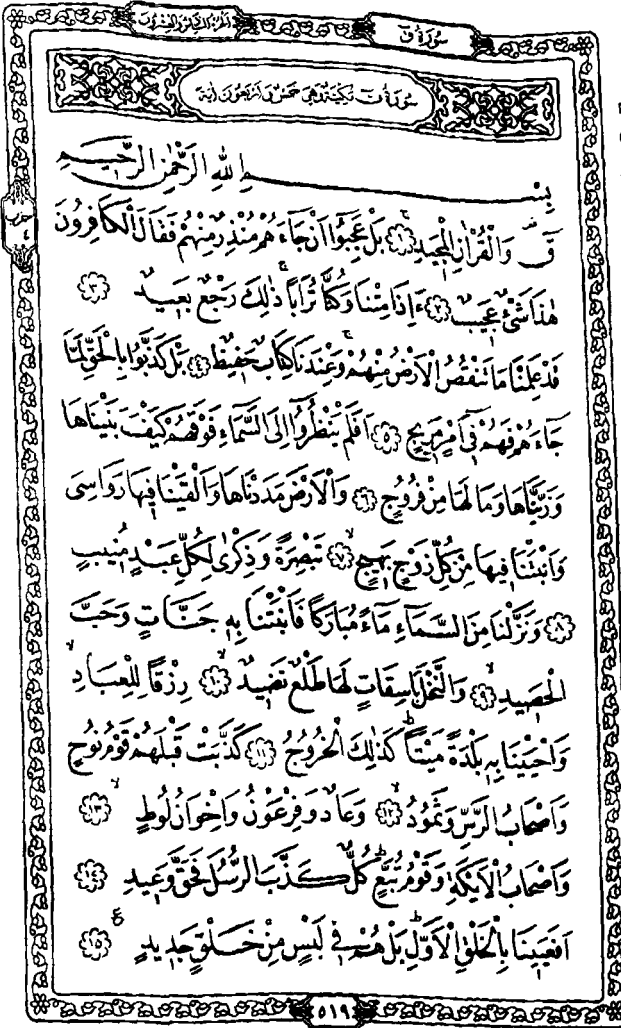 سُورَةُ قٓ
الجزء السادس والعشرون
سُورَةُ قٓ مَكِّيَّةٌ وَهِيَ خَمْسٌ وَاَرْبَعُونَ اٰيَةً
بِسْمِ اللهِ الرَّحْمٰنِ الرَّحِيمِ
حزب ٤
قٓ وَالْقُرْاٰنِ الْمَجِيدِ ﴿١﴾ بَلْ عَجِبُٓوا اَنْ جَٓاءَهُمْ مُنْذِرٌ مِنْهُمْ فَقَالَ الْكَافِرُونَ
هٰذَا شَيْءٌ عَجِيبٌ ﴿٢﴾ ءَاِذَا مِتْنَا وَكُنَّا تُرَاباً ذٰلِكَ رَجْعٌ بَعِيدٌ ﴿٣﴾
قَدْ عَلِمْنَا مَا تَنْقُصُ الْاَرْضُ مِنْهُمْ وَعِنْدَنَا كِتَابٌ حَفِيظٌ ﴿٤﴾ بَلْ كَذَّبُوا بِالْحَقِّ لَمَّا
جَٓاءَهُمْ فَهُمْ فِٓي اَمْرٍ مَرِيجٍ ﴿٥﴾ اَفَلَمْ يَنْظُرُٓوا اِلَى السَّمَٓاءِ فَوْقَهُمْ كَيْفَ بَنَيْنَاهَا
وَزَيَّنَّاهَا وَمَا لَهَا مِنْ فُرُوجٍ ﴿٦﴾ وَالْاَرْضَ مَدَدْنَاهَا وَاَلْقَيْنَا فِيهَا رَوَاسِيَ
وَاَنْبَتْنَا فِيهَا مِنْ كُلِّ زَوْجٍ بَهِيجٍ ﴿٧﴾ تَبْصِرَةً وَذِكْرٰى لِكُلِّ عَبْدٍ مُنِيبٍ
﴿٨﴾ وَنَزَّلْنَا مِنَ السَّمَٓاءِ مَٓاءً مُبَارَكاً فَاَنْبَتْنَا بِهِ جَنَّاتٍ وَحَبَّ
الْحَصِيدِ ﴿٩﴾ وَالنَّخْلَ بَاسِقَاتٍ لَهَا طَلْعٌ نَضِيدٌ ﴿١٠﴾ رِزْقاً لِلْعِبَادِ
وَاَحْيَيْنَا بِهِ بَلْدَةً مَيْتاً كَذٰلِكَ الْخُرُوجُ ﴿١١﴾ كَذَّبَتْ قَبْلَهُمْ قَوْمُ نُوحٍ
وَاَصْحَابُ الرَّسِّ وَثَمُودُ ﴿١٢﴾ وَعَادٌ وَفِرْعَوْنُ وَاِخْوَانُ لُوطٍ ﴿١٣﴾
وَاَصْحَابُ الْاَيْكَةِ وَقَوْمُ تُبَّعٍ كُلٌّ كَذَّبَ الرُّسُلَ فَحَقَّ وَعِيدِ ﴿١٤﴾
اَفَعَيِينَا بِالْخَلْقِ الْاَوَّلِ بَلْ هُمْ فِي لَبْسٍ مِنْ خَلْقٍ جَدِيدٍ ﴿١٥﴾ ع
٥١٩